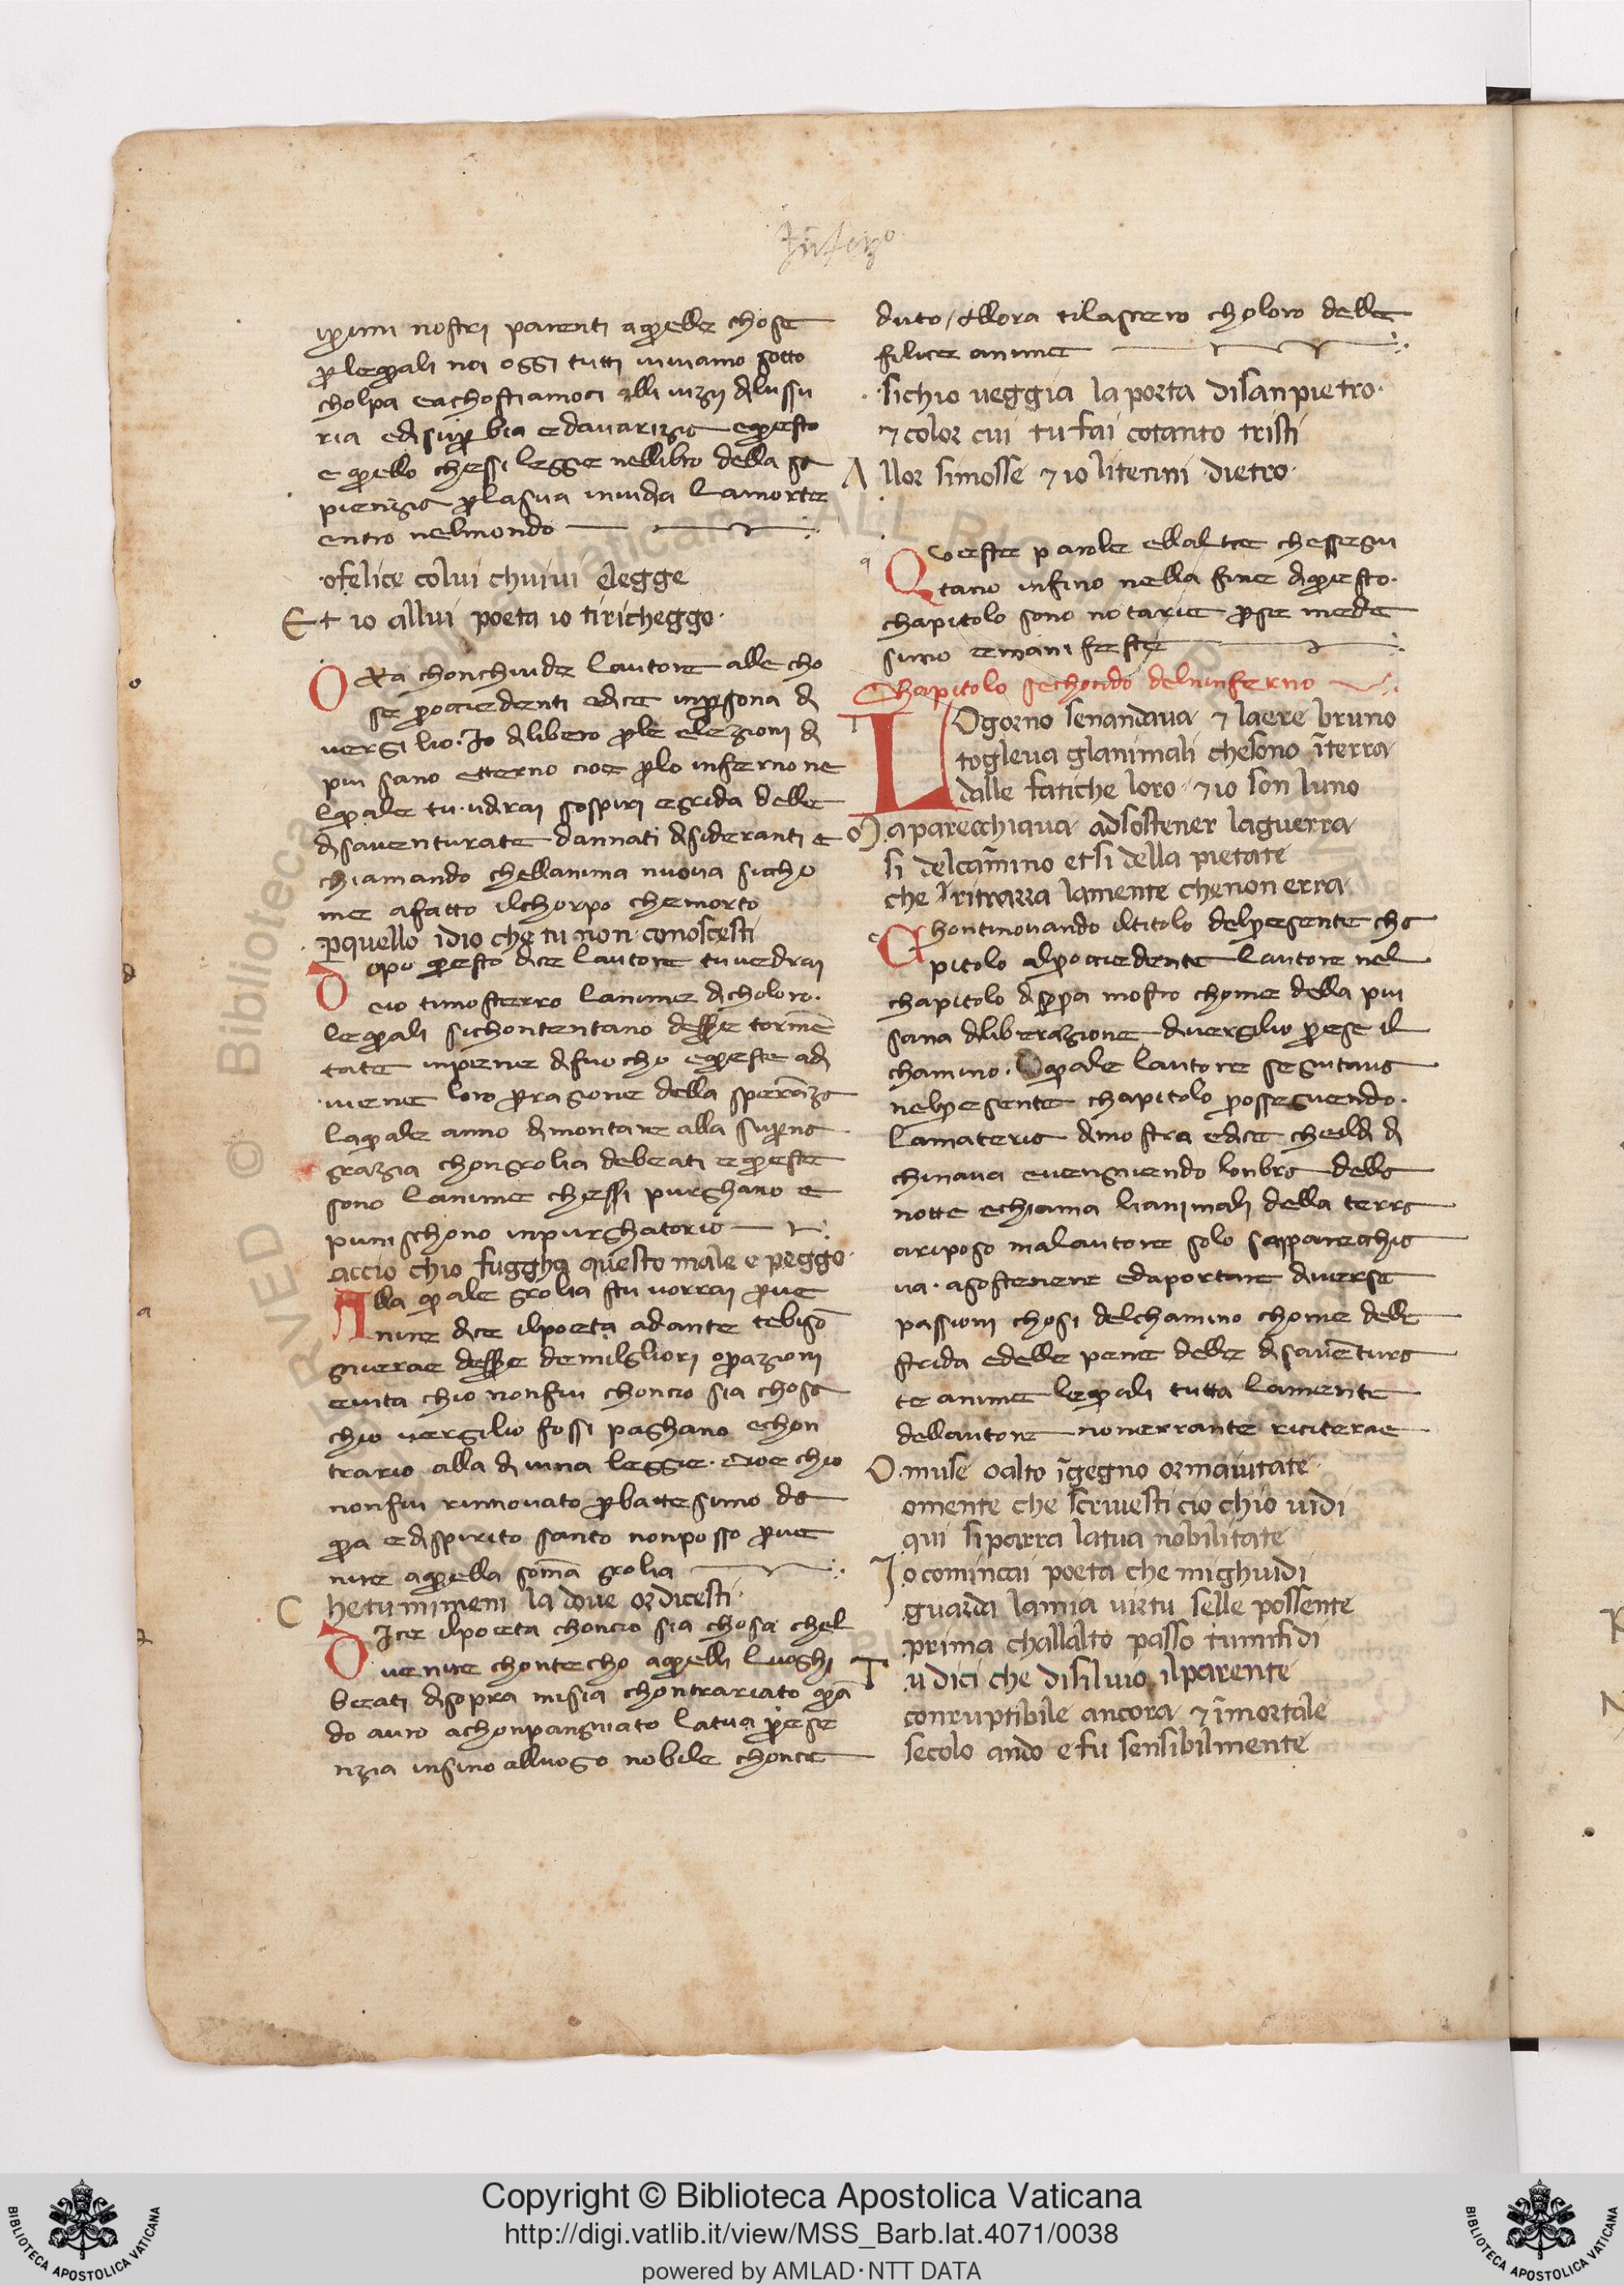 Inferno
iprimi nostri parenti aquelle chose
perlequali noi oggi tutti viviamo sotto
cholpa eachostiamoci alli vizij dilussu
ria edisuperbia edavarizia equesto
e quello chessi legge nellibro della sa
pienzia perlasua invidia lamorte
entro nelmondo
ofelice colui chuiui elegge
Et io allui poeta io tiricheggo
ORa chonchiude lautore alle cho
se procciedenti edice inpersona di
vergilio. Io dilibero perle elezioni di
piu sano etterno cioe perlo inferno ne
lquale tu udirai sospiri egrida delle
disaventurate dannati disideranti e
chiamando chellanima nuova sicho
me afatto ilchorpo chemorto
perquello idio che tu non conoscesti
dopo questo dice lautore tuvedrai
cio timosterro lanime dicholoro
lequali sichontentano dessere tormen
tate inpene difuocho equeste adi
viene loro perragione della speranza
laquale anno dimontare alla superna
grazia chongrolia debeati equeste
sono lanime chessi purghano e
punischono inpurghatorio
accio chio fuggha questo male e peggo
Alla quale grolia stu vorrai perve
nire dice ilpoeta adante tebiso
gnierae dessere demilgliori operazioni
evita chio nonfui choncio sia chosa
chio vergilio fossi paghano echon
trario alla divina leggie. Cioe chio
nonfui rinnovato perbattesimo da
qua edispirito santo nonposso perve
nire aquella soma grolia
Chetumimeni la dove ordicesti
dIce ilpoeta choncio sia chosa chel
venire chontecho aquelli luoghi
beati disopra misia chontrariato quan
do avro achonpangniato latua prese
nzia insino alluogo nobile chonce
duto, Allora tilascero choloro delle
filice anime
sichio veggia la porta disanpietro
7 color cui tu fai cotanto tristi
Allor simosse 7 io litenni dietro
Queste parole ellaltre chessegui
tano infino nella fine diquesto
chapitolo sono notarie perse mede
simo emanifeste
Chapitolo sechondo delninferno
LOgorno senandava 7 laere bruno
togleva glanimali chesono iterra
dalle fatiche loro 7 io son luno
Maparecchiava adsostener laguerra
si delcamino etsi della pietate
che ritrarra lamente chenon erra
Chontinovando iltitolo delpresente cha
pitolo alprocciedente lautore nel
chapitolo disopra mostro chome della piu
sana diliberazione divergilio prese il
chamino. Oquale lautore seguitava
nelpresente chapitolo prosseguendo
lamateria dimostra edice cheildi di
chinava evengniendo lonbra della
notte echiama lianimali della terra
ariposo malautore solo sapparecchia
va asostenere edaportare diverse
passioni chosi delchamino chome delle
strida edelle pene delle disaventura
te anime lequali tutta lamente
dellautore nonerrante riciterae
O muse oalto igegno ormaiutate
omente che scrivesti cio chio vidi
qui siparra latua nobilitate
Jo cominciai poeta che mighuidi
guarda lamia virtu selle possente
prima challalto passo tumifidi
Tu dici che disiluio ilparente
conruptibile ancora 7 imortale
secolo ando e fu sensibilmente
Copyright © Biblioteca Apostolica Vaticana
http://digi.vatlib.it/view/MSS_Barb.lat.4071/0038
powered by AMLAD·NTT DATA
BIBLIOTECA APOSTOLICA VATICANA
BIBLIOTECA APOSTOLICA VATICANA